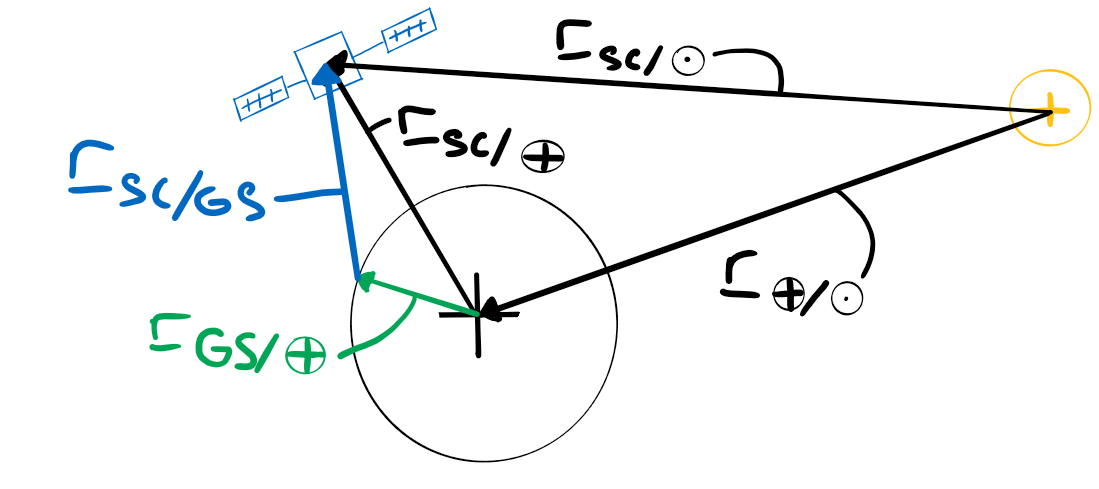 r SC/☉
r SC/⊕
r SC/GS
r ⊕/☉
r GS/⊕